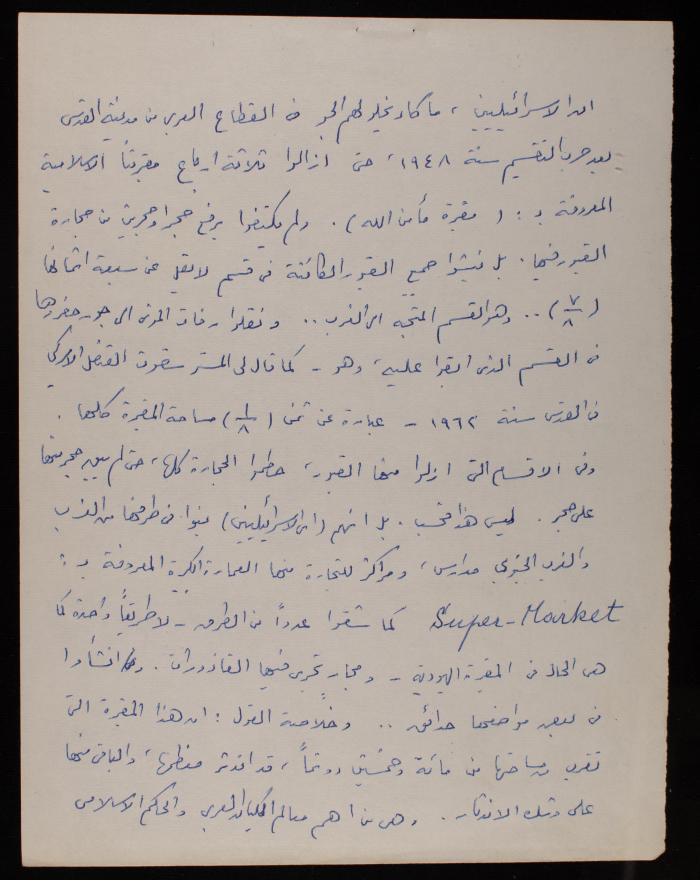 ان الاسرائيليين، ما كاد يخلو لهم الجو في القطاع العربي من مدينة القدس
بعد حرب التقسيم سنة ١٩٤٨، حتى ازالوا ثلاثة ارباع مقبرتنا الاسلامية
المعروفة بـ: (مقبرة مأمن الله). ولم يكتفوا برفع حجر او حجرين من حجارة
القبور فيها. بل نبشوا جميع القبور الكائنة في قسم لا يقل عن سبعة اثمانها
(٧/٨).. وهو القسم المتجه الى الغرب.. ونقلوا رفات الموتى الى جور حفروها
في القسم الذي ابقوا عليه، وهو - كما قال لي المستر القنصل الاميركي
في القدس سنة ١٩٦٢ - عبارة عن ثمن (١/٨) مساحة المقبرة كلها.
وفي الاقسام التي ازيلوا منها القبور، حطموا الحجارة كلها، حتى لم يبق حجر منها
على حجر. ليس هذا فحسب. بل انهم (اي الاسرائيليين) بنوا في طرفها من الغرب
والغرب الجنوبي مدارس، ومراكز للتجارة منها العمارة الكبيرة المعروفة بـ:
Super-Market كما شقوا عدداً من الطرق - لا طريقاً واحدة كما
هي الحال في المقبرة اليهودية - ومجار تجري فيها القاذورات. وانشأوا
في بعض مواضعها حدائق.. وخلاصة القول: ان هذا المقبرة التي
تقرب مساحتها من مائة وخمسين دونماً، قد اندثر معظمها، والباقي منها
على وشك الاندثار. وهي من اهم معالم الكيان العربي والحكم الاسلامي